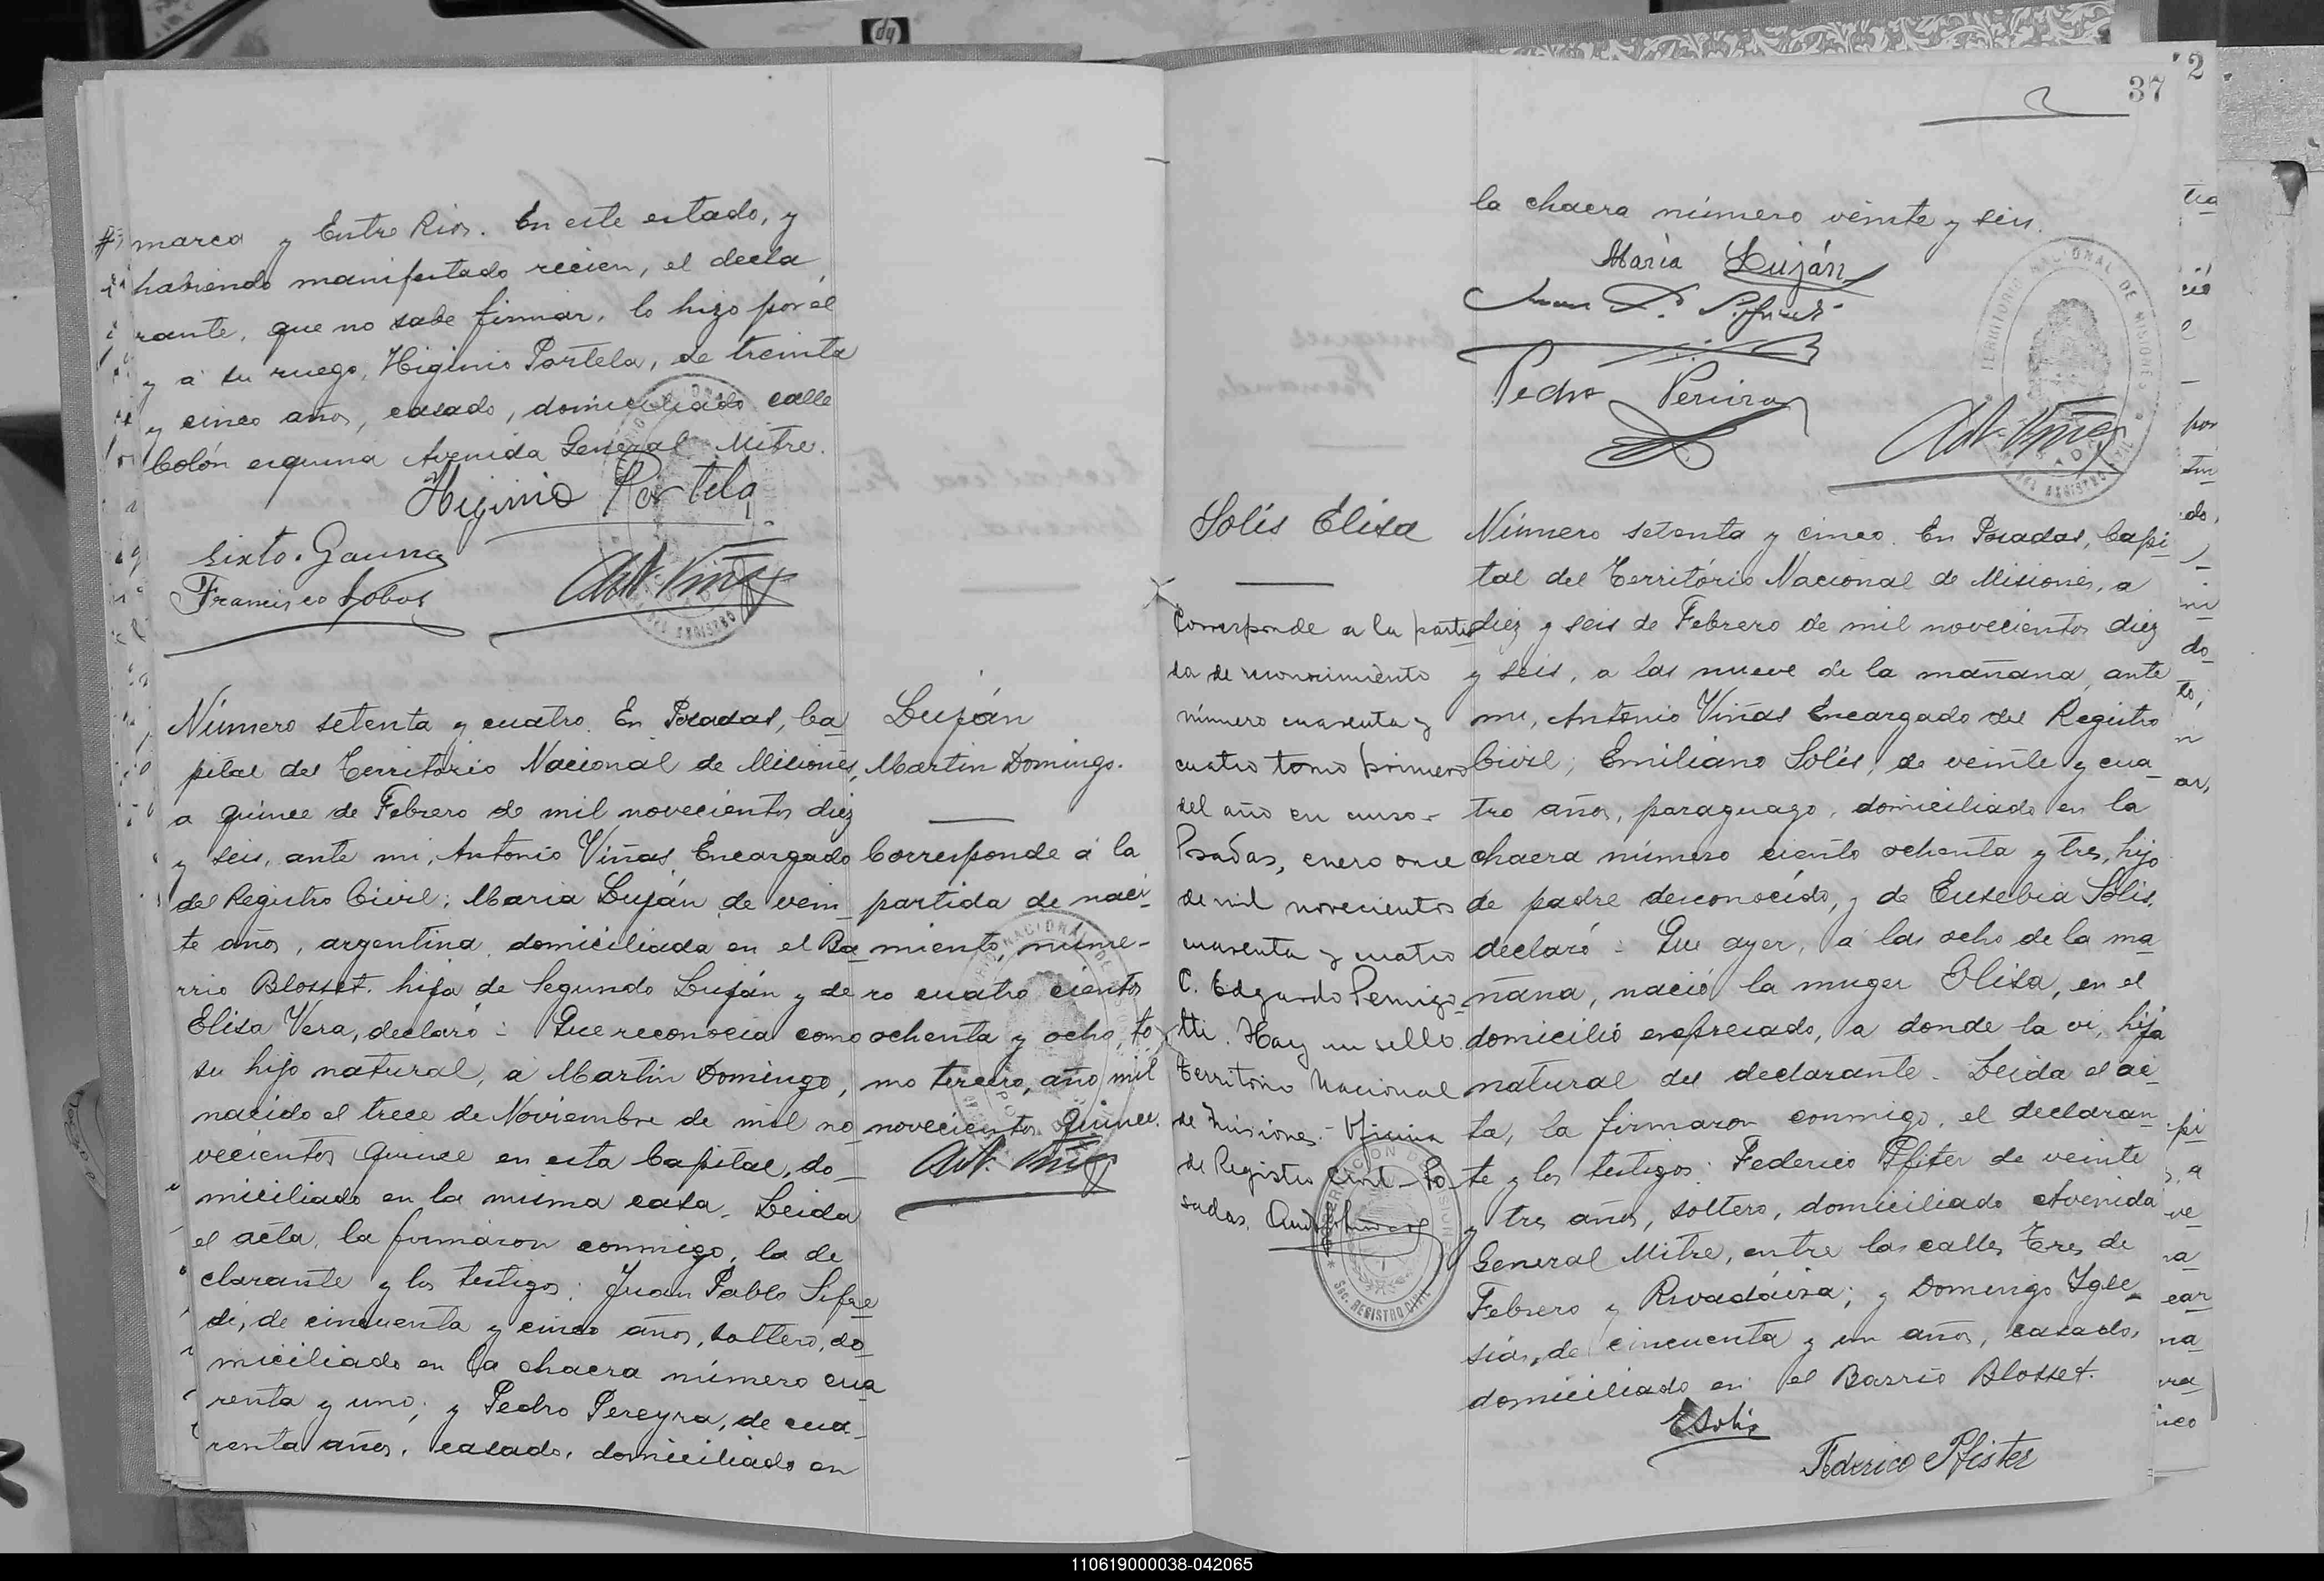 marca y Entre Rios. En este estado, y
habiendo manifestado recien, el decla
rante, que no sabe firmar, lo hizo por él
y á su ruego, Higinio Portela, de treinta
y cinco años, casado, domiciliado calle
Colón esquina Avenida General Mitre.
Higinio Portela
Sixto Gauna
Francisco Lobos
Ant. Viñas
Número setenta y cuatro. En Posadas, Ca
pital del Territorio Nacional de Misiones,
a quince de Febrero de mil novecientos diez
y seis, ante mi, Antonio Viñas Encargado
del Registro Civil; Maria Luján de vein
te años, argentina, domiciliada en el Ba
rrio Blosset, hija de Segundo Luján y de
Elisa Vera, declaró: Que reconocia como
su hijo natural, á Martin Domingo,
nacido el trece de Noviembre de mil no
vecientos quince en esta Capital, do
miciliado en la misma casa. Leida
el acta, la firmaron conmigo, la de
clarante y los testigos: Juan Pablo Sifre
di, de cincuenta y cinco años, soltero, do
miciliado en la chacra número cua
renta y uno; y Pedro Pereyra, de cua
renta años, casado, domiciliado en
Luján
Martin Domingo.
Corresponde á la
partida de naci-
miento, núme-
ro cuatro cientos
ochenta y ocho, to
mo tercero, año mil
novecientos quince.
Ant. Viñas
37
2
la chacra número veinte y seis.
María Luján
Juan P. Sifredi
Pedro Pereira
Ant. Viñas
TERRITORIO NACIONAL DE MISIONES
Solís Elisa
Corresponde a la parti
da de reconocimiento
número cuarenta y
cuatro tomo primero
del año en curso.-
Posadas, enero once
de mil novecientos
cuarenta y cuatro
C. Edgardo Pernigo
tti. Hay un sello
Territorio Nacional
de Misiones.- Oficina
de Registro Civil - Po-
sadas.
SEC. REGISTRO CIVIL
Número setenta y cinco. En Posadas, Capi
tal del Territorio Nacional de Misiones, a
diez y seis de Febrero de mil novecientos diez
y seis, a las nueve de la mañana, ante
mi, Antonio Viñas Encargado del Registro
Civil; Emiliano Solís, de veinte y cua
tro años, paraguayo, domiciliado en la
chacra número ciento ochenta y tres, hijo
de padre desconocido, y de Eusebia Solis,
declaró: Que ayer, á las ocho de la ma
ñana, nació la muger Elisa, en el
domicilio expresado, a donde la vi, hija
natural del declarante. Leida el ac
ta, la firmaron conmigo, el declaran
te y los testigos: Federico Pfister de veinte
y tres años, soltero, domiciliado Avenida
General Mitre, entre las calles Tres de
Febrero y Rivadávia; y Domingo Igle
sias, de cincuenta y un años, casado,
domiciliado en el Barrio Blosset.
E Solis
Federico Pfister
110619000038-042065